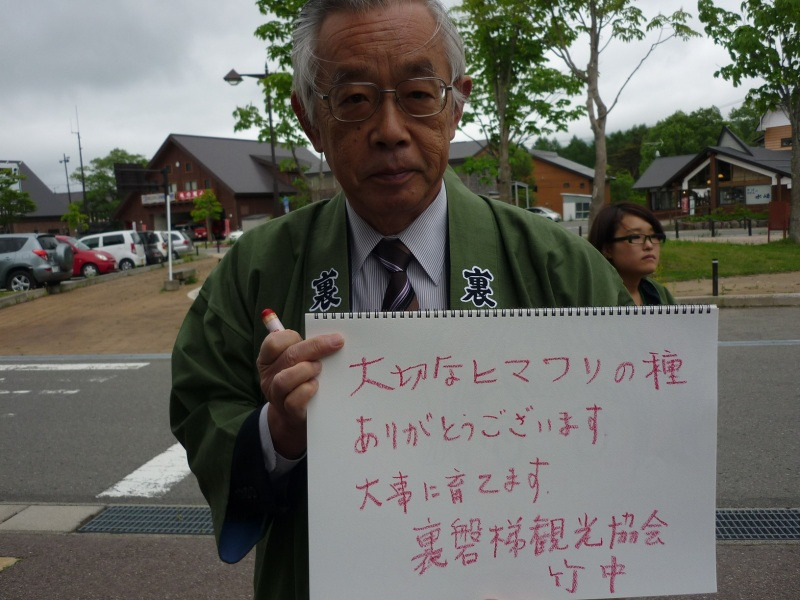 裏
裏
大切なヒマワリの種
ありがとうございます
大事に育てます.
裏磐梯観光協会
竹中